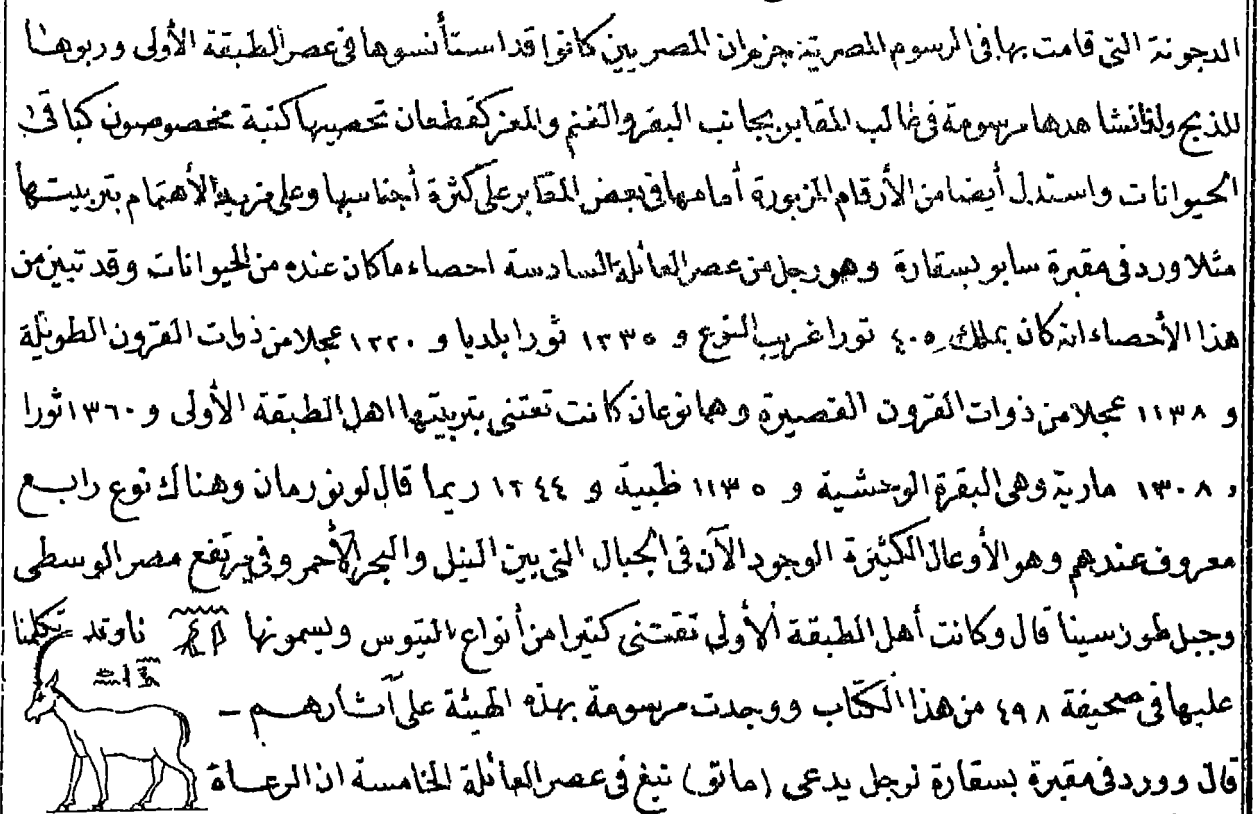 الدجونة التي قامت بها في الرسوم المصرية جزم ان المصريين كانوا قد استأنسوها في عصر الطبقة الأولى وربوها
للذبح ولذا نشاهدها مرسومة في غالب المقابر بجانب البقر والغنم والمعز كقطعان تحصيها كتبة مخصوصون كباقي
الحيوانات واستدل أيضا من الأرقام المزبورة أمامها في بعض المقابر على كثرة أجناسها وعلى مزيد الأهتمام بتربيتها
مثلا ورد في مقبرة سابو بسقارة وهو رجل من عصر العائلة السادسة احصاء ما كان عنده من الحيوانات وقد تبين من
هذا الأحصاء انه كان يملك ٤٠٥ ثورا غريب النوع و ١٢٣٥ ثورا بلديا و ١٢٢٠ عجلا من ذوات القرون الطويلة
و ١١٣٨ عجلا من ذوات القرون القصيرة وهما نوعان كانت تعتنى بتربيتها اهل الطبقة الأولى و ١٣٦٠ ثورا
و ١٣٠٨ مارية وهي البقرة الوحشية و ١١٣٥ ظبية و ١٢٤٤ ريما قال لونورمان وهناك نوع رابع
معروف عندهم وهو الأوعال الكثيرة الوجود الآن في الجبال التي بين النيل والبحر الأحمر وفي مرتفع مصر الوسطى
وجبل طور سينا قال وكانت أهل الطبقة الأولى تقتنى كثيرا من أنواع التيوس ويسمونها ناو وقد تكلمنا
عليها في صحيفة ٤٩٨ من هذا الكتاب ووجدت مرسومة بهذه الهيئة على آثارهم –
قال وورد في مقبرة بسقارة لرجل يدعى (ماتق) نبغ في عصر العائلة الخامسة ان الرعاة